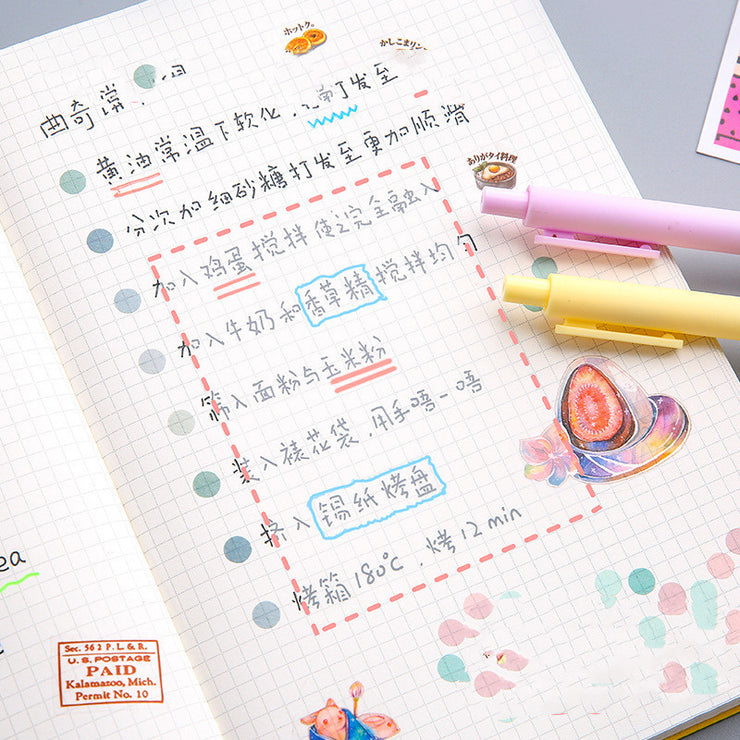 ホットク。
かしこまリン
曲奇常
打发至
黄油常温下软化，
分次加细砂糖打发至更加顺滑
ありがタイ料理
加入鸡蛋搅拌使之完全融入
加入牛奶和香草精搅拌均匀
筛入面粉与玉米粉
装入裱花袋，用手唔一唔
挤入锡纸烤盘
烤箱180℃，烤12min
ea
Sec. 562 P. L. & R.
U. S. POSTAGE
PAID
Kalamazoo, Mich.
Permit No. 10